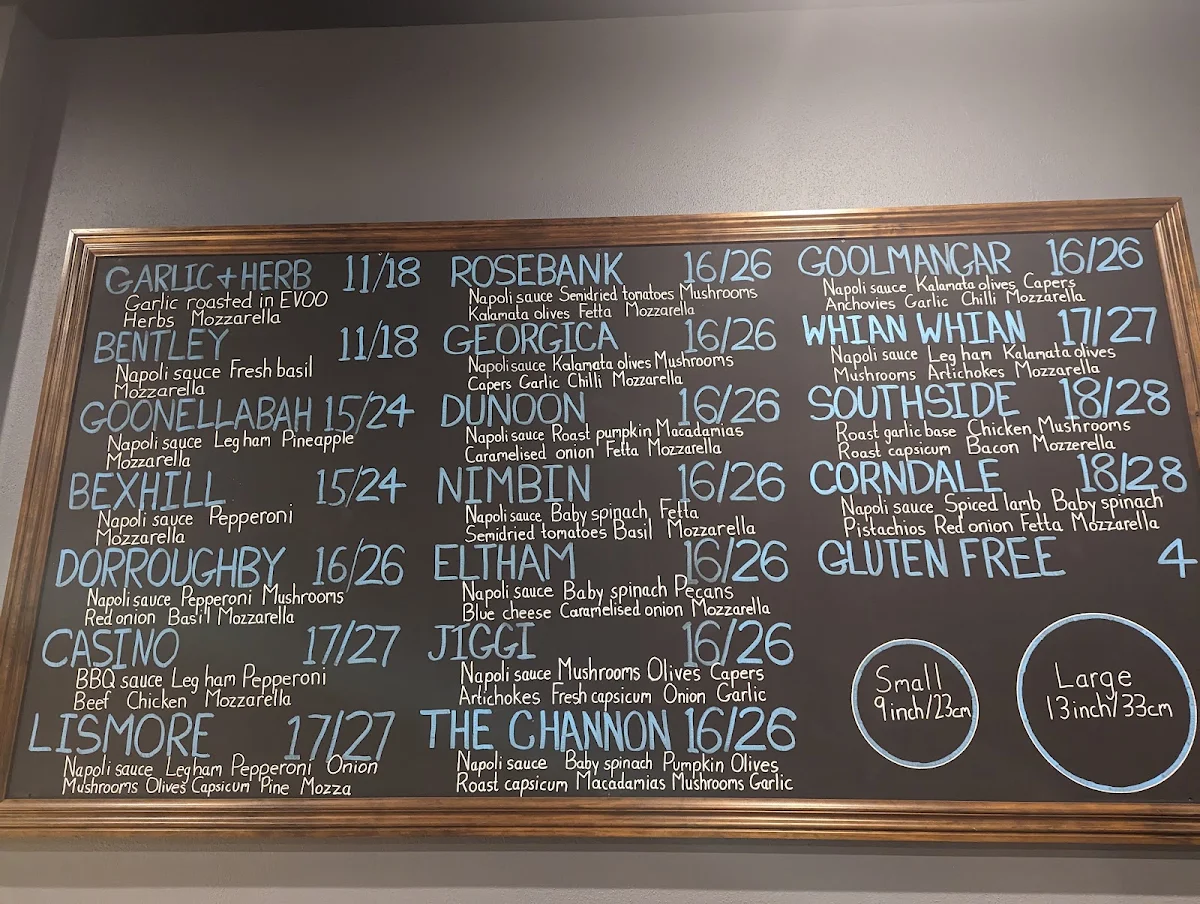 GARLIC + HERB 11/18
Garlic roasted in EVOO
Herbs Mozzarella
BENTLEY 11/18
Napoli sauce Fresh basil
Mozzarella
GOONELLABAH 15/24
Napoli sauce Leg ham Pineapple
Mozzarella
BEXHILL 15/24
Napoli sauce Pepperoni
Mozzarella
DORROUGHBY 16/26
Napoli sauce Pepperoni Mushrooms
Red onion Basil Mozzarella
CASINO 17/27
BBQ sauce Leg ham Pepperoni
Beef Chicken Mozzarella
LISMORE 17/27
Napoli sauce Leg ham Pepperoni Onion
Mushrooms Olives Capsicum Pine Mozza
ROSEBANK 16/26
Napoli sauce Semidried tomatoes Mushrooms
Kalamata olives Fetta Mozzarella
GEORGICA 16/26
Napoli sauce Kalamata olives Mushrooms
Capers Garlic Chilli Mozzarella
DUNOON 16/26
Napoli sauce Roast pumpkin Macadamias
Caramelised onion Fetta Mozzarella
NIMBIN 16/26
Napoli sauce Baby spinach Fetta
Semidried tomatoes Basil Mozzarella
ELTHAM 16/26
Napoli sauce Baby spinach Pecans
Blue cheese Caramelised onion Mozzarella
JIGGI 16/26
Napoli sauce Mushrooms Olives Capers
Artichokes Fresh capsicum Onion Garlic
THE CHANNON 16/26
Napoli sauce Baby spinach Pumpkin Olives
Roast capsicum Macadamias Mushrooms Garlic
GOOLMANGAR 16/26
Napoli sauce Kalamata olives Capers
Anchovies Garlic Chilli Mozzarella
WHIAN WHIAN 17/27
Napoli sauce Leg ham Kalamata olives
Mushrooms Artichokes Mozzarella
SOUTHSIDE 18/28
Roast garlic base Chicken Mushrooms
Roast capsicum Bacon Mozzerella
CORNDALE 18/28
Napoli sauce Spiced lamb Baby spinach
Pistachios Red onion Fetta Mozzarella
GLUTEN FREE 4
Small
9 inch/23cm
Large
13 inch/33cm